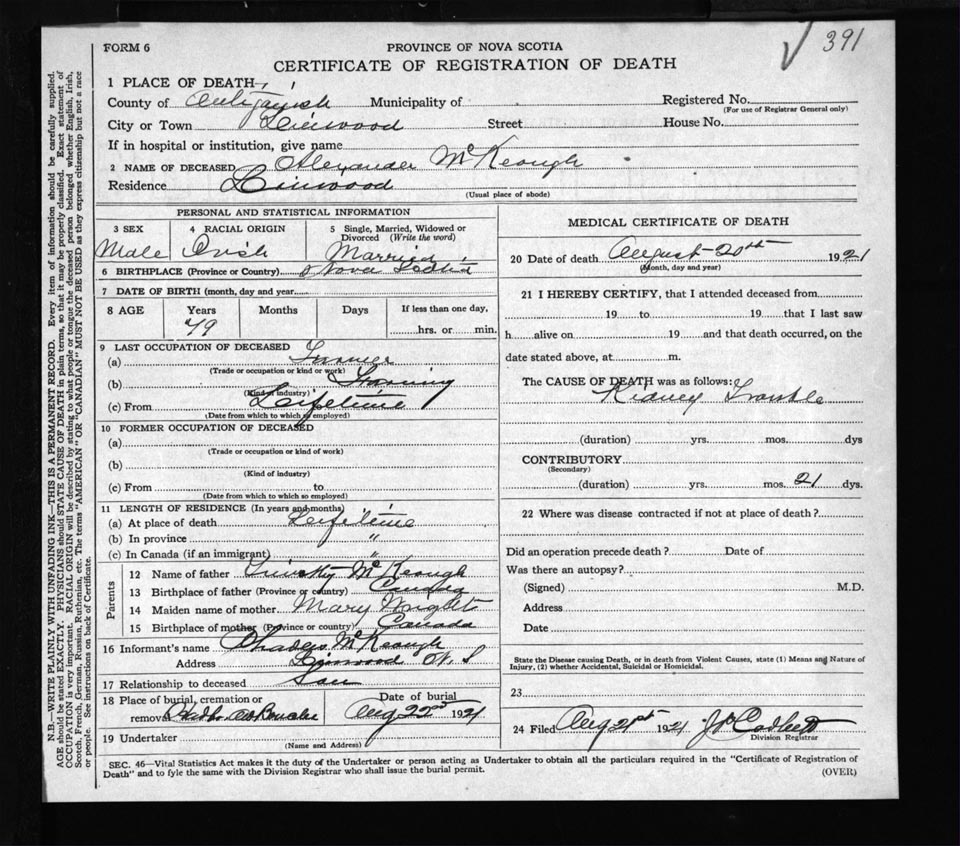 391
FORM 6
PROVINCE OF NOVA SCOTIA
CERTIFICATE OF REGISTRATION OF DEATH
1 PLACE OF DEATH
County of Antigonish Municipality of Registered No.
(For use of Registrar General only)
City or Town Linwood Street House No.
If in hospital or institution, give name
2 NAME OF DECEASED Alexander McKeough
Residence Linwood
(Usual place of abode)
PERSONAL AND STATISTICAL INFORMATION
3 SEX 4 RACIAL ORIGIN 5 Single, Married, Widowed or Divorced (Write the word)
Male Irish Married
6 BIRTHPLACE (Province or Country) Nova Scotia
7 DATE OF BIRTH (month, day and year)
8 AGE Years Months Days If less than one day,
79 hrs. or min.
9 LAST OCCUPATION OF DECEASED
(a) Farmer
(Trade or occupation or kind or work)
(b) Farming
(Kind of industry)
(c) From Lifetime
(Date from which to which so employed)
10 FORMER OCCUPATION OF DECEASED
(a)
(Trade or occupation or kind of work)
(b)
(Kind of industry)
(c) From to
(Date from which to which so employed)
11 LENGTH OF RESIDENCE (In years and months)
(a) At place of death Lifetime
(b) In province "
(c) In Canada (if an immigrant) "
Parents
12 Name of father McKeough
13 Birthplace of father (Province or country) Canada
14 Maiden name of mother Mary Wright
15 Birthplace of mother (Province or country) Canada
16 Informant's name Charles McKeough
Address Linwood N.S
17 Relationship to deceased Son
18 Place of burial, cremation or removal Date of burial
Aug 22nd 1921
19 Undertaker
(Name and Address)
MEDICAL CERTIFICATE OF DEATH
20 Date of death August 20th 1921
(Month, day and year)
21 I HEREBY CERTIFY, that I attended deceased from
19 to 19 that I last saw
h alive on 19 and that death occurred, on the
date stated above, at m.
The CAUSE OF DEATH was as follows:
Kidney Trouble
(duration) yrs. mos. dys
CONTRIBUTORY
(Secondary)
(duration) yrs. mos. 21 dys.
22 Where was disease contracted if not at place of death?
Did an operation precede death? Date of
Was there an autopsy?
(Signed) M.D.
Address
Date
State the Disease causing Death, or in death from Violent Causes, state (1) Means and Nature of
Injury, (2) whether Accidental, Suicidal or Homicidal.
23
24 Filed Aug 21st 1921
Division Registrar
SEC. 46—Vital Statistics Act makes it the duty of the Undertaker or person acting as Undertaker to obtain all the particulars required in the "Certificate of Registration of
Death" and to fyle the same with the Division Registrar who shall issue the burial permit.
(OVER)
N.B.—WRITE PLAINLY WITH UNFADING INK—THIS IS A PERMANENT RECORD. Every item of information should be carefully supplied.
AGE should be stated EXACTLY. PHYSICIANS should STATE CAUSE OF DEATH in plain terms, so that it may be properly classified. Exact statement of
OCCUPATION is very important. RACIAL ORIGIN will be described by stating to what people or tongue the deceased person belonged whether English, Irish,
Scotch, French, German, Russian, Ruthenian, etc. The terms "AMERICAN" OR "CANADIAN" MUST NOT BE USED as they express citizenship but not a race
or people. See instructions on back of Certificate.